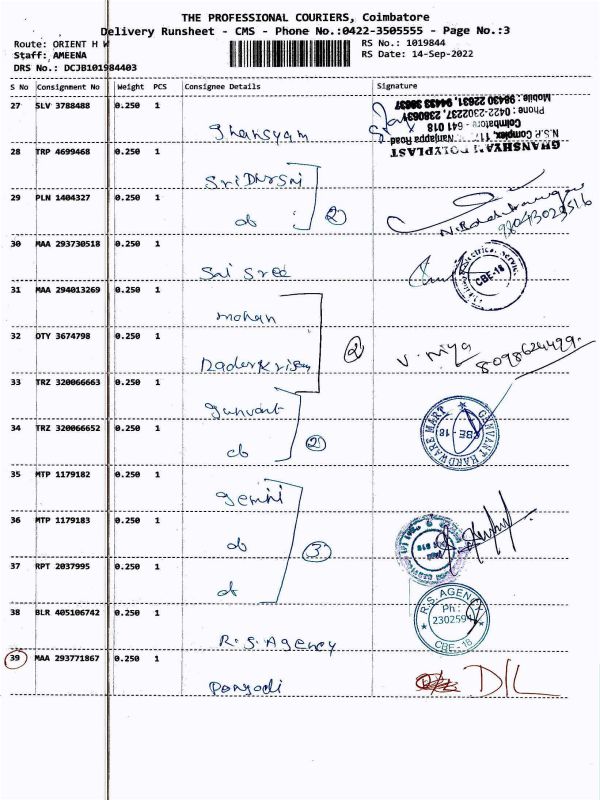 THE PROFESSIONAL COURIERS, Coimbatore
Delivery Runsheet - CMS - Phone No.:0422-3505555 - Page No.:3
Route: ORIENT H W
RS No.: 1019844
Staff: AMEENA
RS Date: 14-Sep-2022
DRS No.: DCJB101984403
S No Consignment No Weight PCS Consignee Details Signature
27 SLV 3788488 0.250 1
Ghansyam
GHANSHYAM POLYPLAST
N.S.P. Complex, 117, Nanjappa Road
Coimbatore - 641 018
Phone : 0422-2302237, 2380631
Mobile : 98430 22631, 94433 38637
28 TRP 4699468 0.250 1
29 PLN 1404327 0.250 1
do 2
30 MAA 293730518 0.250 1
Sri Sree
CBE-18
31 MAA 294013269 0.250 1
mohan
32 OTY 3674798 0.250 1
2 V. niya 8098624499.
33 TRZ 320066663 0.250 1
gunvant
34 TRZ 320066652 0.250 1
do 2
GANVANT HARDWARE MART
CBE - 18
35 MTP 1179182 0.250 1
gemini
36 MTP 1179183 0.250 1
do 3
37 RPT 2037995 0.250 1
do
38 BLR 405106742 0.250 1
R.S. Agency
R.S. AGENCY
Ph :
CBE - 18
39 MAA 293771867 0.250 1
D/L